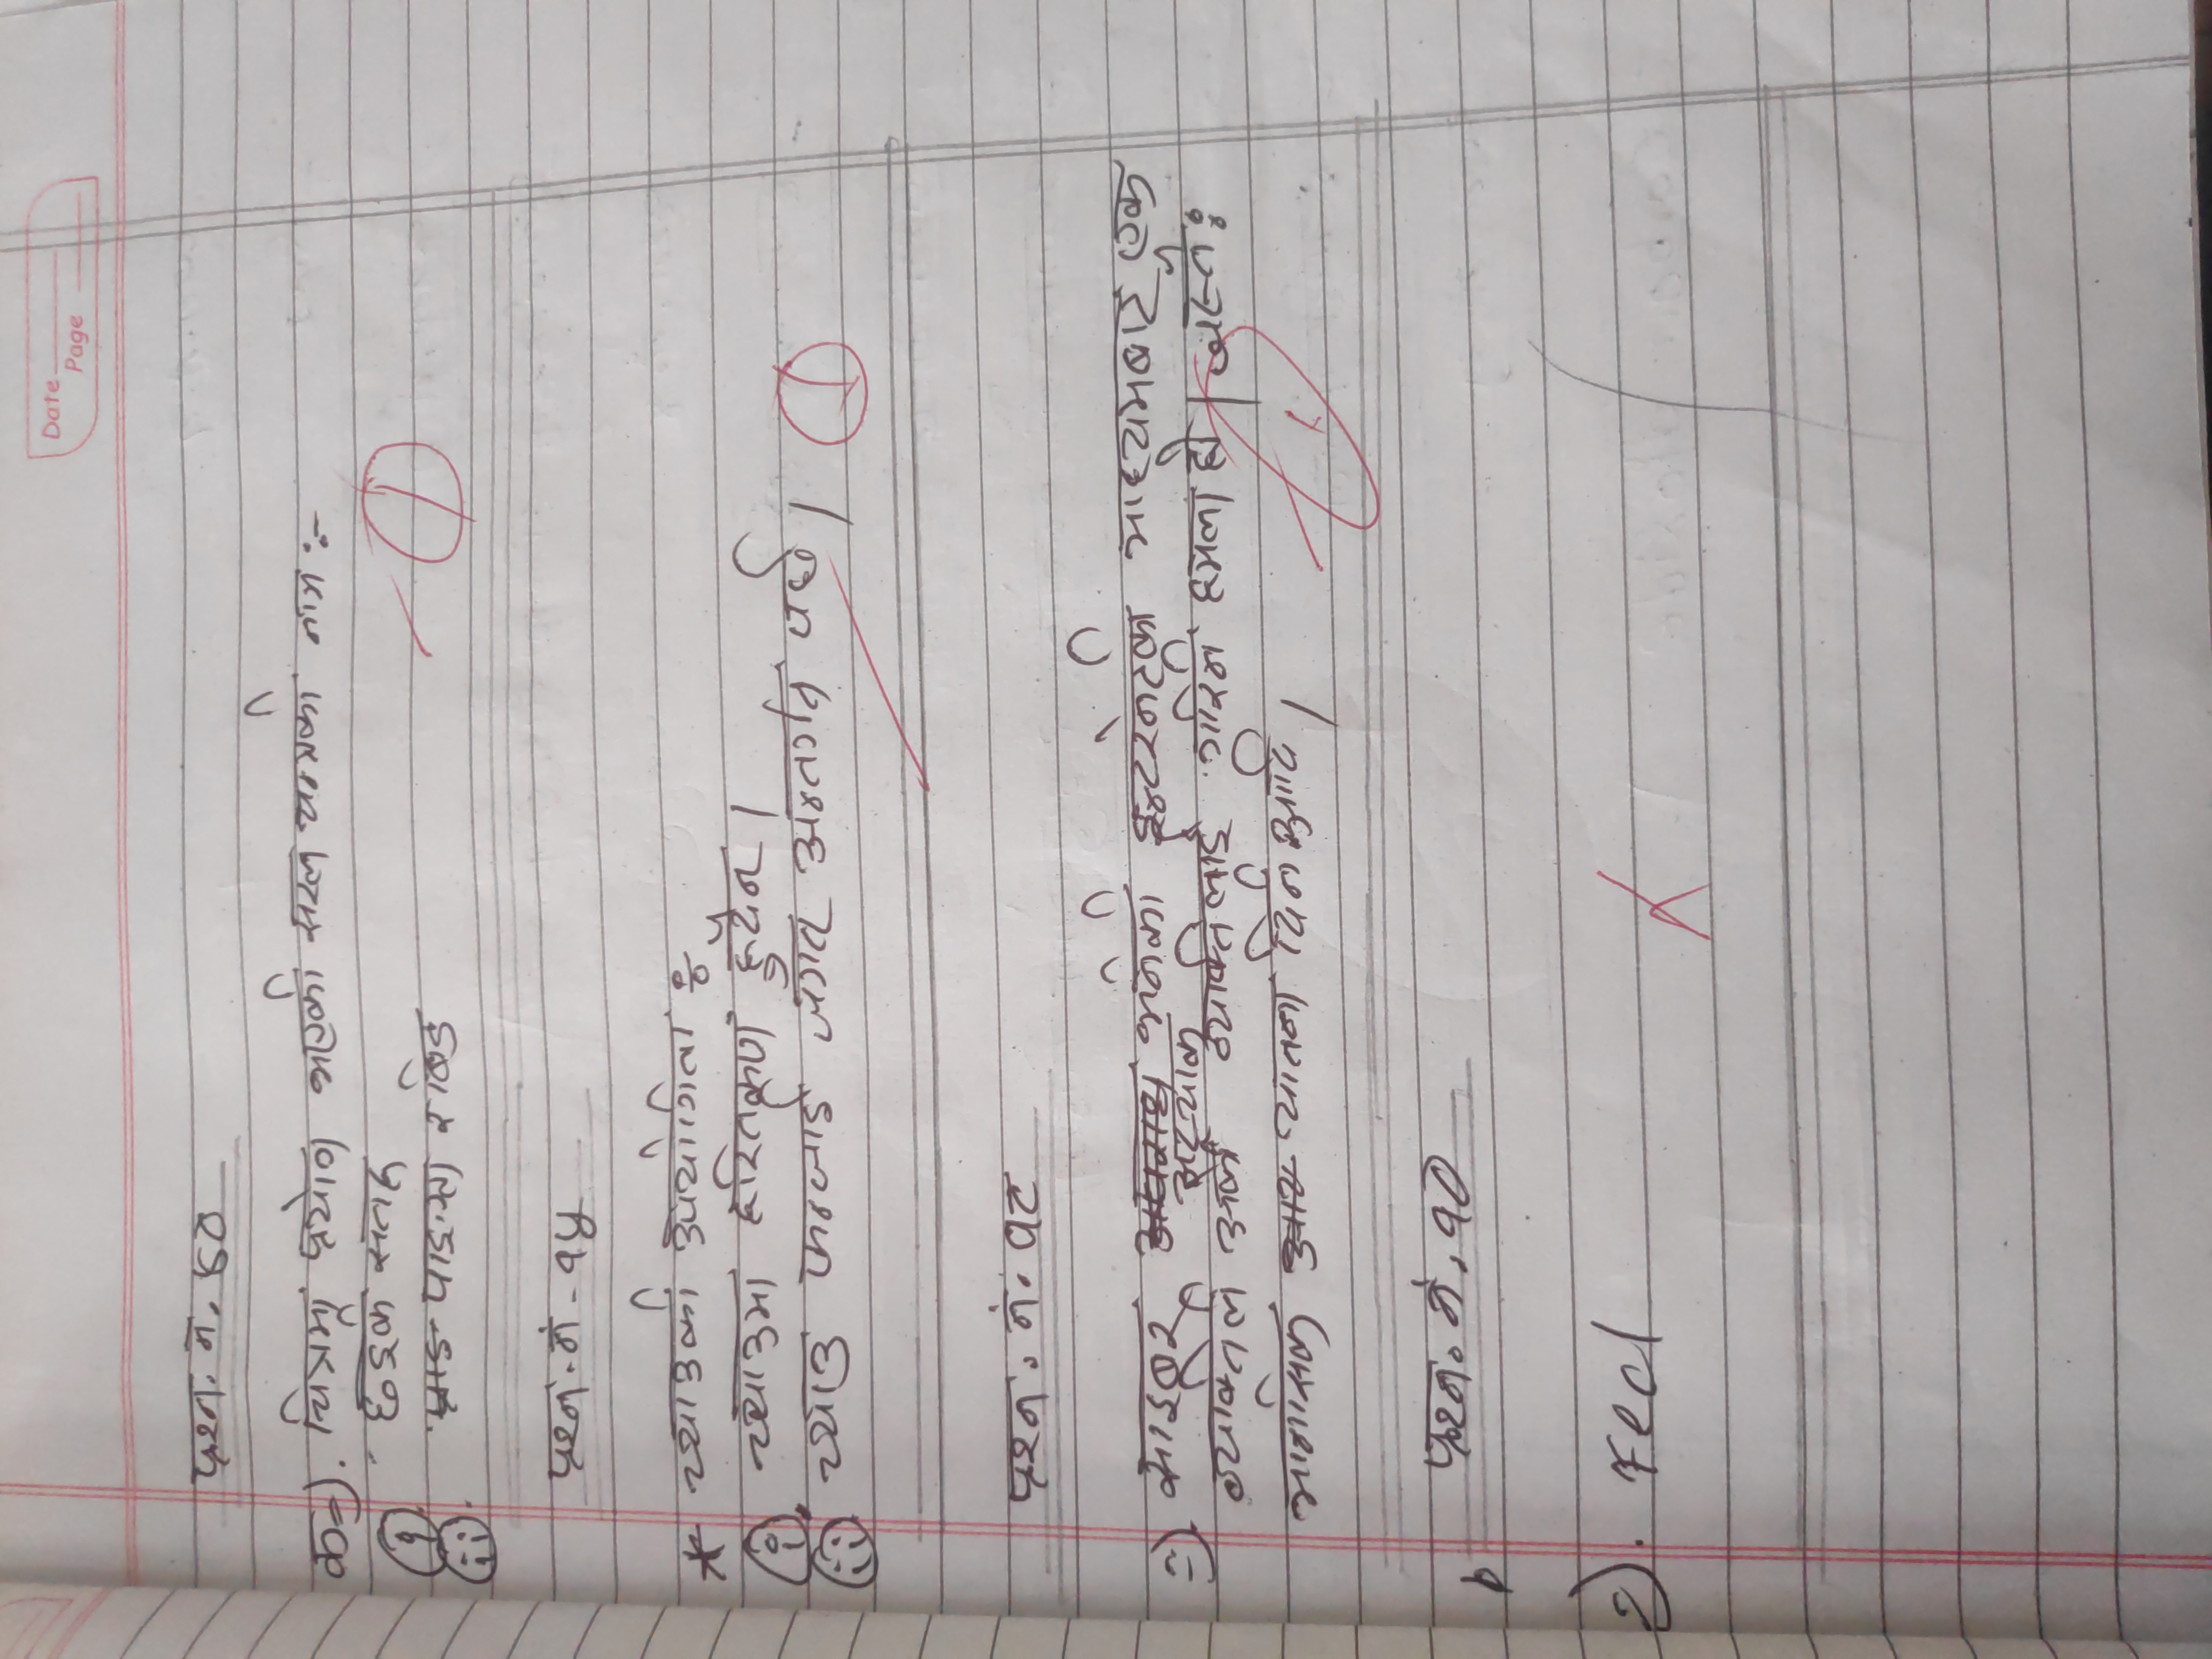 Date
Page
प्रश्न. नं. ४०
क⇒). चित्रमा प्रयोग भएको सरल यन्त्रको नाम :-
i छड्के सतह
ii. पाङ्ग्रा र बिँड
प्रश्न. नं - १५
* च्याउको उपयोगिता :
i. च्याउमा हरितकण हुदैन ।
ii च्याउ फन्जाई जगत अन्तर्गत पर्छ ।
प्रश्न. नं. १८
=). साइबर भनेको इन्टरनेटको माध्यमबाट एक
व्यक्तिले अर्को व्यक्तिलाई गरिने हमला हो । जस्तै :
मानसिक यातना दिने आदि ।
प्रश्न. नं. १०
2). Fecl